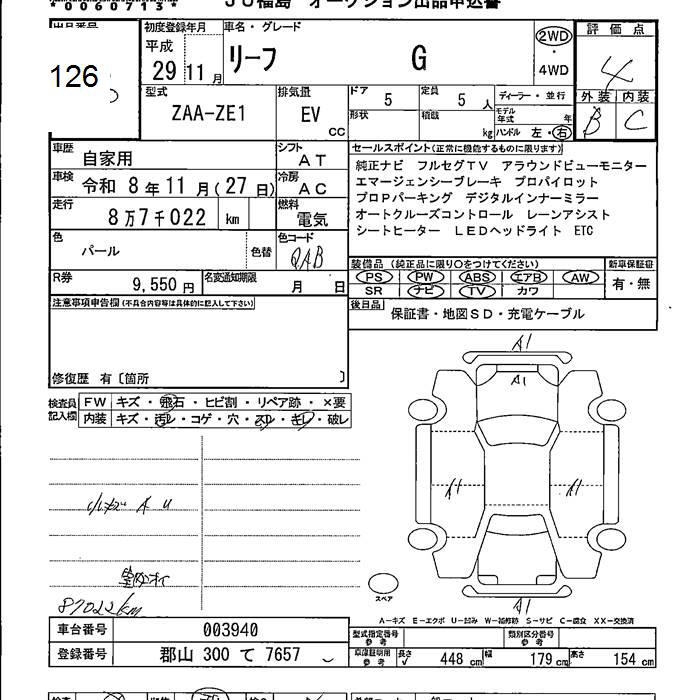 *0060713*
JU福島 オークション出品申込書
出品番号
126
初度登録年月
平成
29年11月
車名・グレード
リーフ G
2WD
・
4WD
評価点
4
外装 内装
B C
型式
ZAA-ZE1
排気量
EV
CC
ドア
5
定員
5 人
形状
積載
kg
ディーラー・並行
モデル年式 年
ハンドル 左・右
車歴
自家用
シフト
AT
車検
令和 8年11月(27日)
冷房
AC
走行
8万7千022 km
燃料
電気
色
パール
色替
色コード
QAB
R券
9,550円
名変通知期限
月 日
セールスポイント(正常に機能するものに限ります)
純正ナビ フルセグTV アラウンドビューモニター
エマージェンシーブレーキ プロパイロット
プロPパーキング デジタルインナーミラー
オートクルーズコントロール レーンアシスト
シートヒーター LEDヘッドライト ETC
装備品(純正品に限り○をつけてください)
PS PW ABS エアB AW
SR ナビ TV カワ
新車保証書
有・無
後日品
保証書・地図SD・充電ケーブル
注意事項申告欄(不具合内容等は具体的に記入して下さい)
修復歴 有〔箇所 〕
検査員記入欄
FW キズ・飛石・ヒビ割・リペア跡・×要
内装 キズ・汚レ・コゲ・穴・スレ・キレ・破レ
A U
87022km
A1
A1
A1
A1
A1
スペア
A-キズ E-エクボ U-凹み W-補修跡 S-サビ C-腐食 XX-交換済
車台番号
003940
登録番号
郡山 300 て 7657
型式指定番号
参考
類別区分番号
参考
車庫証明用
参考
長さ 448 cm
幅 179 cm
高さ 154 cm